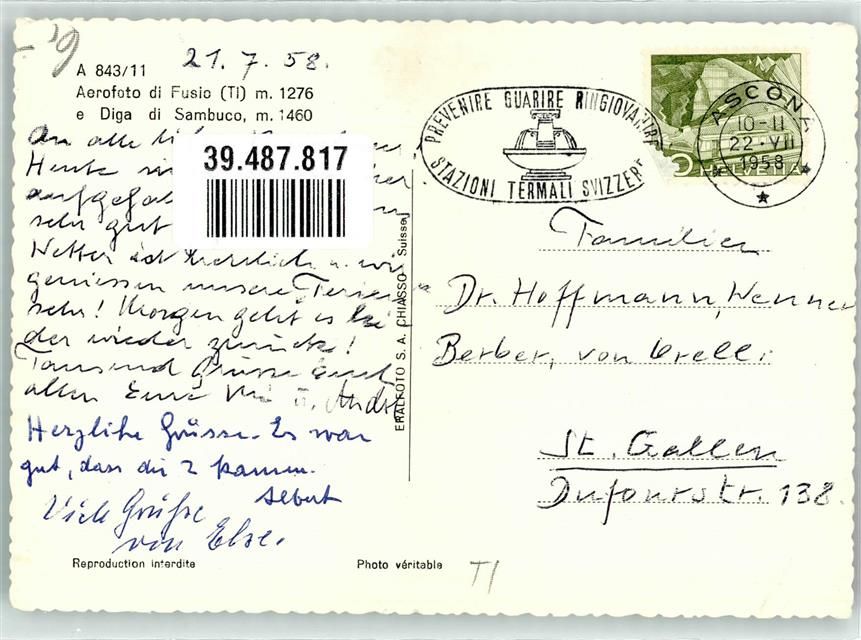 21. 7. 58.
A 843/11
Aerofoto di Fusio (TI) m. 1276
e Diga di Sambuco, m. 1460
An alle
Heute
sehr gut
39.487.817
Wetter ist herrlich u. wir
geniessen unsere Ferien
sehr! Morgen geht es lei
der wieder zurück!
Tausend Grüsse Euch
allen Eure u. André
Herzliche Grüsse. Es war
gut, dass die 2 kamen.
Albert
Viele Grüße
von Else.
Reproduction interdite
Photo véritable
TI
ERALFOTO S. A. CHIASSO (Suisse)
PREVENIRE GUARIRE RINGIOVANIRE
STAZIONI TERMALI SVIZZERE
ASCONA
10-11
22·VII
1958
HELVETIA
Familien
Dr. Hoffmann, Wenner
Berber, von Orelli
St. Gallen
Dufourstr. 138.